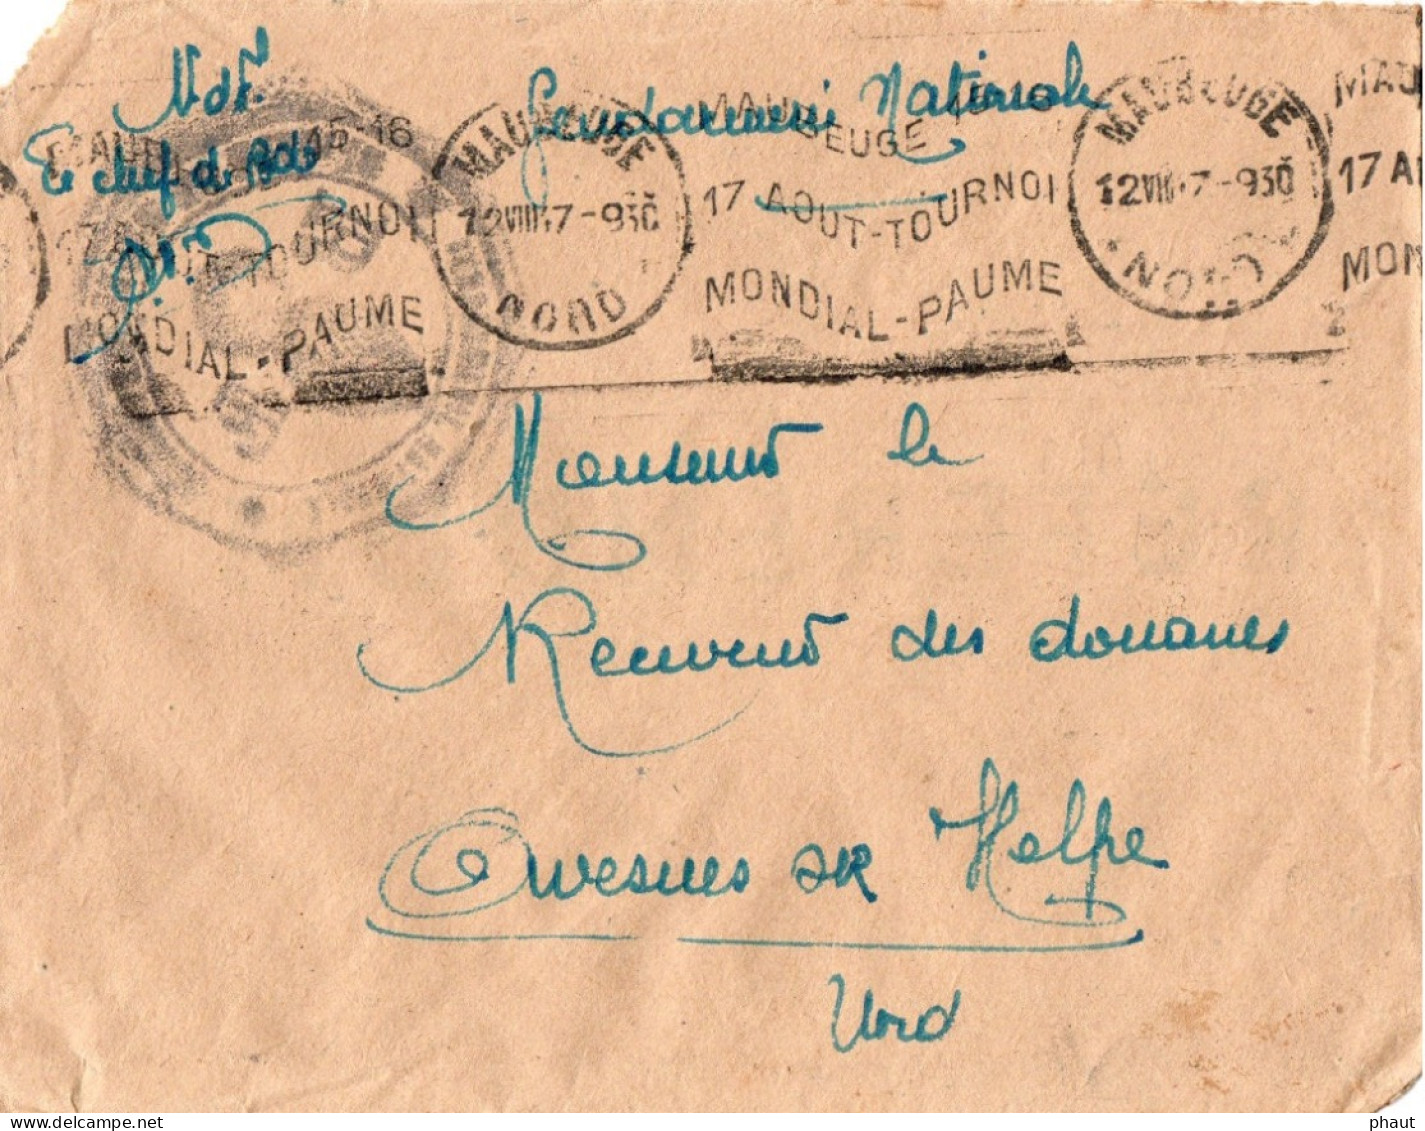 Gendarmerie Nationale
Le chef de
MAUBEUGE 15-16
17 AOUT-TOURNOI
MONDIAL-PAUME
MAUBEUGE
12 VIII 47-930
NORD
MAUBEUGE
17 AOUT-TOURNOI
MONDIAL-PAUME
MAUBEUGE
12 VIII 47-930
NORD
MAU
17 A
MON
Monsieur le
Receveur des douanes
Avesnes sur Helpe
Nord
phaut